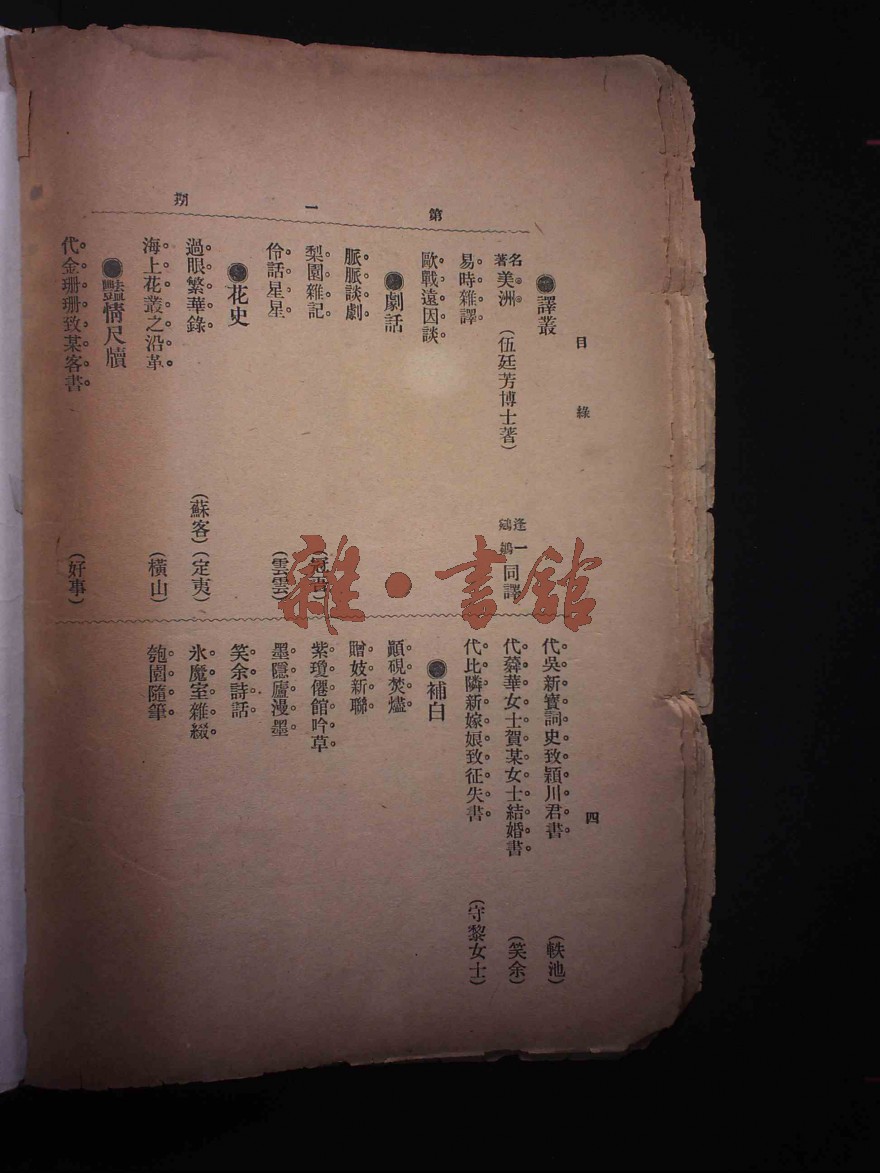 目錄
四
第一册
譯叢
名著 美洲 (伍廷芳博士著) 逢一 鵷鶵 同譯
易時雜譯
歐戰遠因談
劇話
脈脈談劇
梨園雜記
伶話星星 (雲雲)
花史
過眼繁華錄 (蘇客)(定夷)
海上花叢之沿革 (橫山)
豔情尺牘
代金珊珊致某客書 (好事)
代吳新寶詞史致穎川君書 (軼池)
代蕣華女士賀某女士結婚書 (笑余)
代比隣新嫁娘致征夫書 (守黎女士)
補白
顚硯焚燼
贈妓新聯
紫瓊僊館吟草
墨隱廬漫墨
笑余詩話
氷魔室雜綴
匏園隨筆
雜·書館